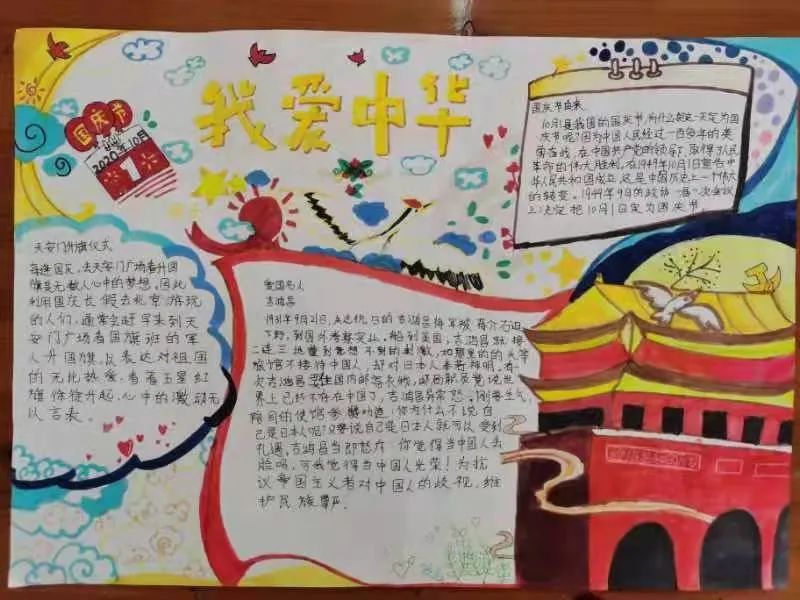 我爱中华
国庆节
2020年10月
1
国庆节由来
10月1是我国的国庆节,为什么
一天定为国
庆节呢?因为中国人民经过一百多年的英
勇奋战,在中国共产党的领导下,取得了人民
革命的伟大胜利,在1949年10月1日宣告中
华人民共和国成立,这是中国历史上一个伟大
的转变。1949年9月的政协一届一次会议
上决定把10月1日定为国庆节。
天安门升旗仪式
每逢国庆,去天安门广场看升国
旗是无数人心中的梦想。因此
利用国庆长假去北京游玩
的人们,通常会赶早来到天
安门广场看国旗班的军
人升国旗,以表达对祖国
的无比热爱,看着五星红
旗徐徐升起,心中的激动无
以言表。
爱国名人
吉鸿昌
1931年9月21日,矢志抗日的吉鸿昌将军被蒋介石逼
下野,到国外考察实业。船到美国,吉鸿昌就接
二连三地遭到意想不到的刺激,如那里的头等
旅馆不接待中国人,却对日本人奉若神明。有一
次吉鸿昌要往国内邮寄衣物,邮局职员竟说世
界上已经不存在中国了,吉鸿昌异常愤怒,刚要发作,
陪同的使馆参赞劝道:你为什么不说自
己是日本人呢?只要说自己是日本人就可以受到
礼遇。吉鸿昌当即怒斥:你觉得当中国人丢
脸吗,可我觉得当中国人光荣!为抗
议帝国主义者对中国人的歧视,维
护民族尊严。